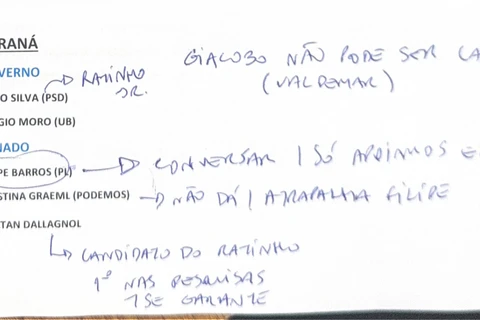 RANÁ
VERNO
O SILVA (PSD) → RATINHO JR.
GIO MORO (UB)
GIACOBO NÃO PODE SER CA
(VALDEMAR)
NADO
PE BARROS (PL) → CONVERSAR / SÓ APOIAMOS E
STINA GRAEML (PODEMOS) → NÃO DÁ / ATRAPALHA FILIPE
TAN DALLAGNOL
↳ CANDIDATO DO RATINHO
1º NAS PESQUISAS
SE GARANTE